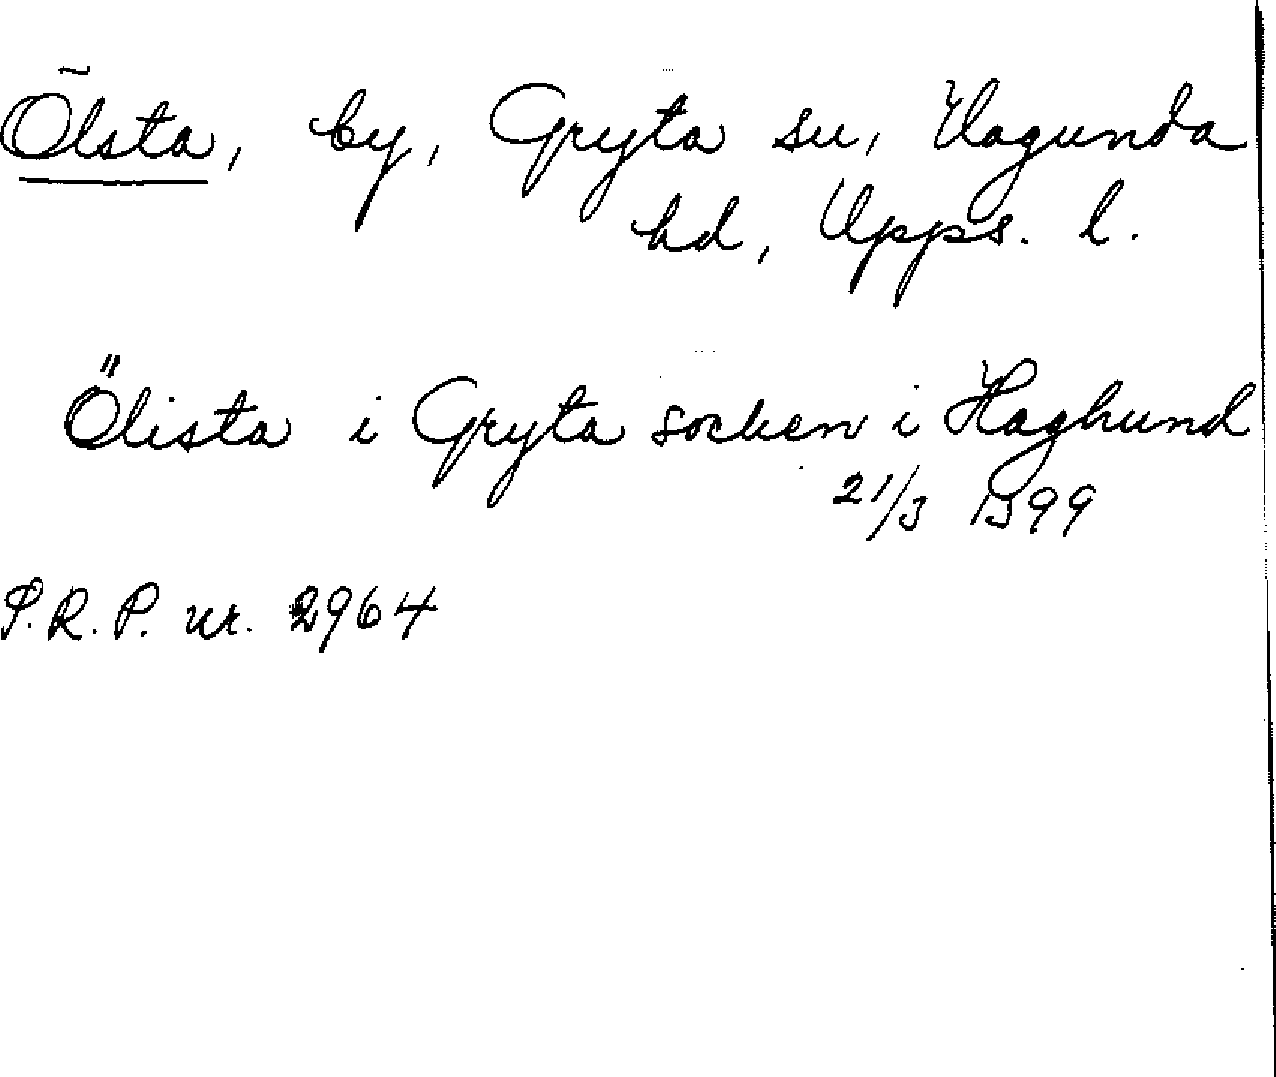 Ölsta, by, Gryta sn, Hagunda
hd, Upps. l.
Ölista i Gryta socken i Haghund
21/3 1399
S.R.P. nr. 2964